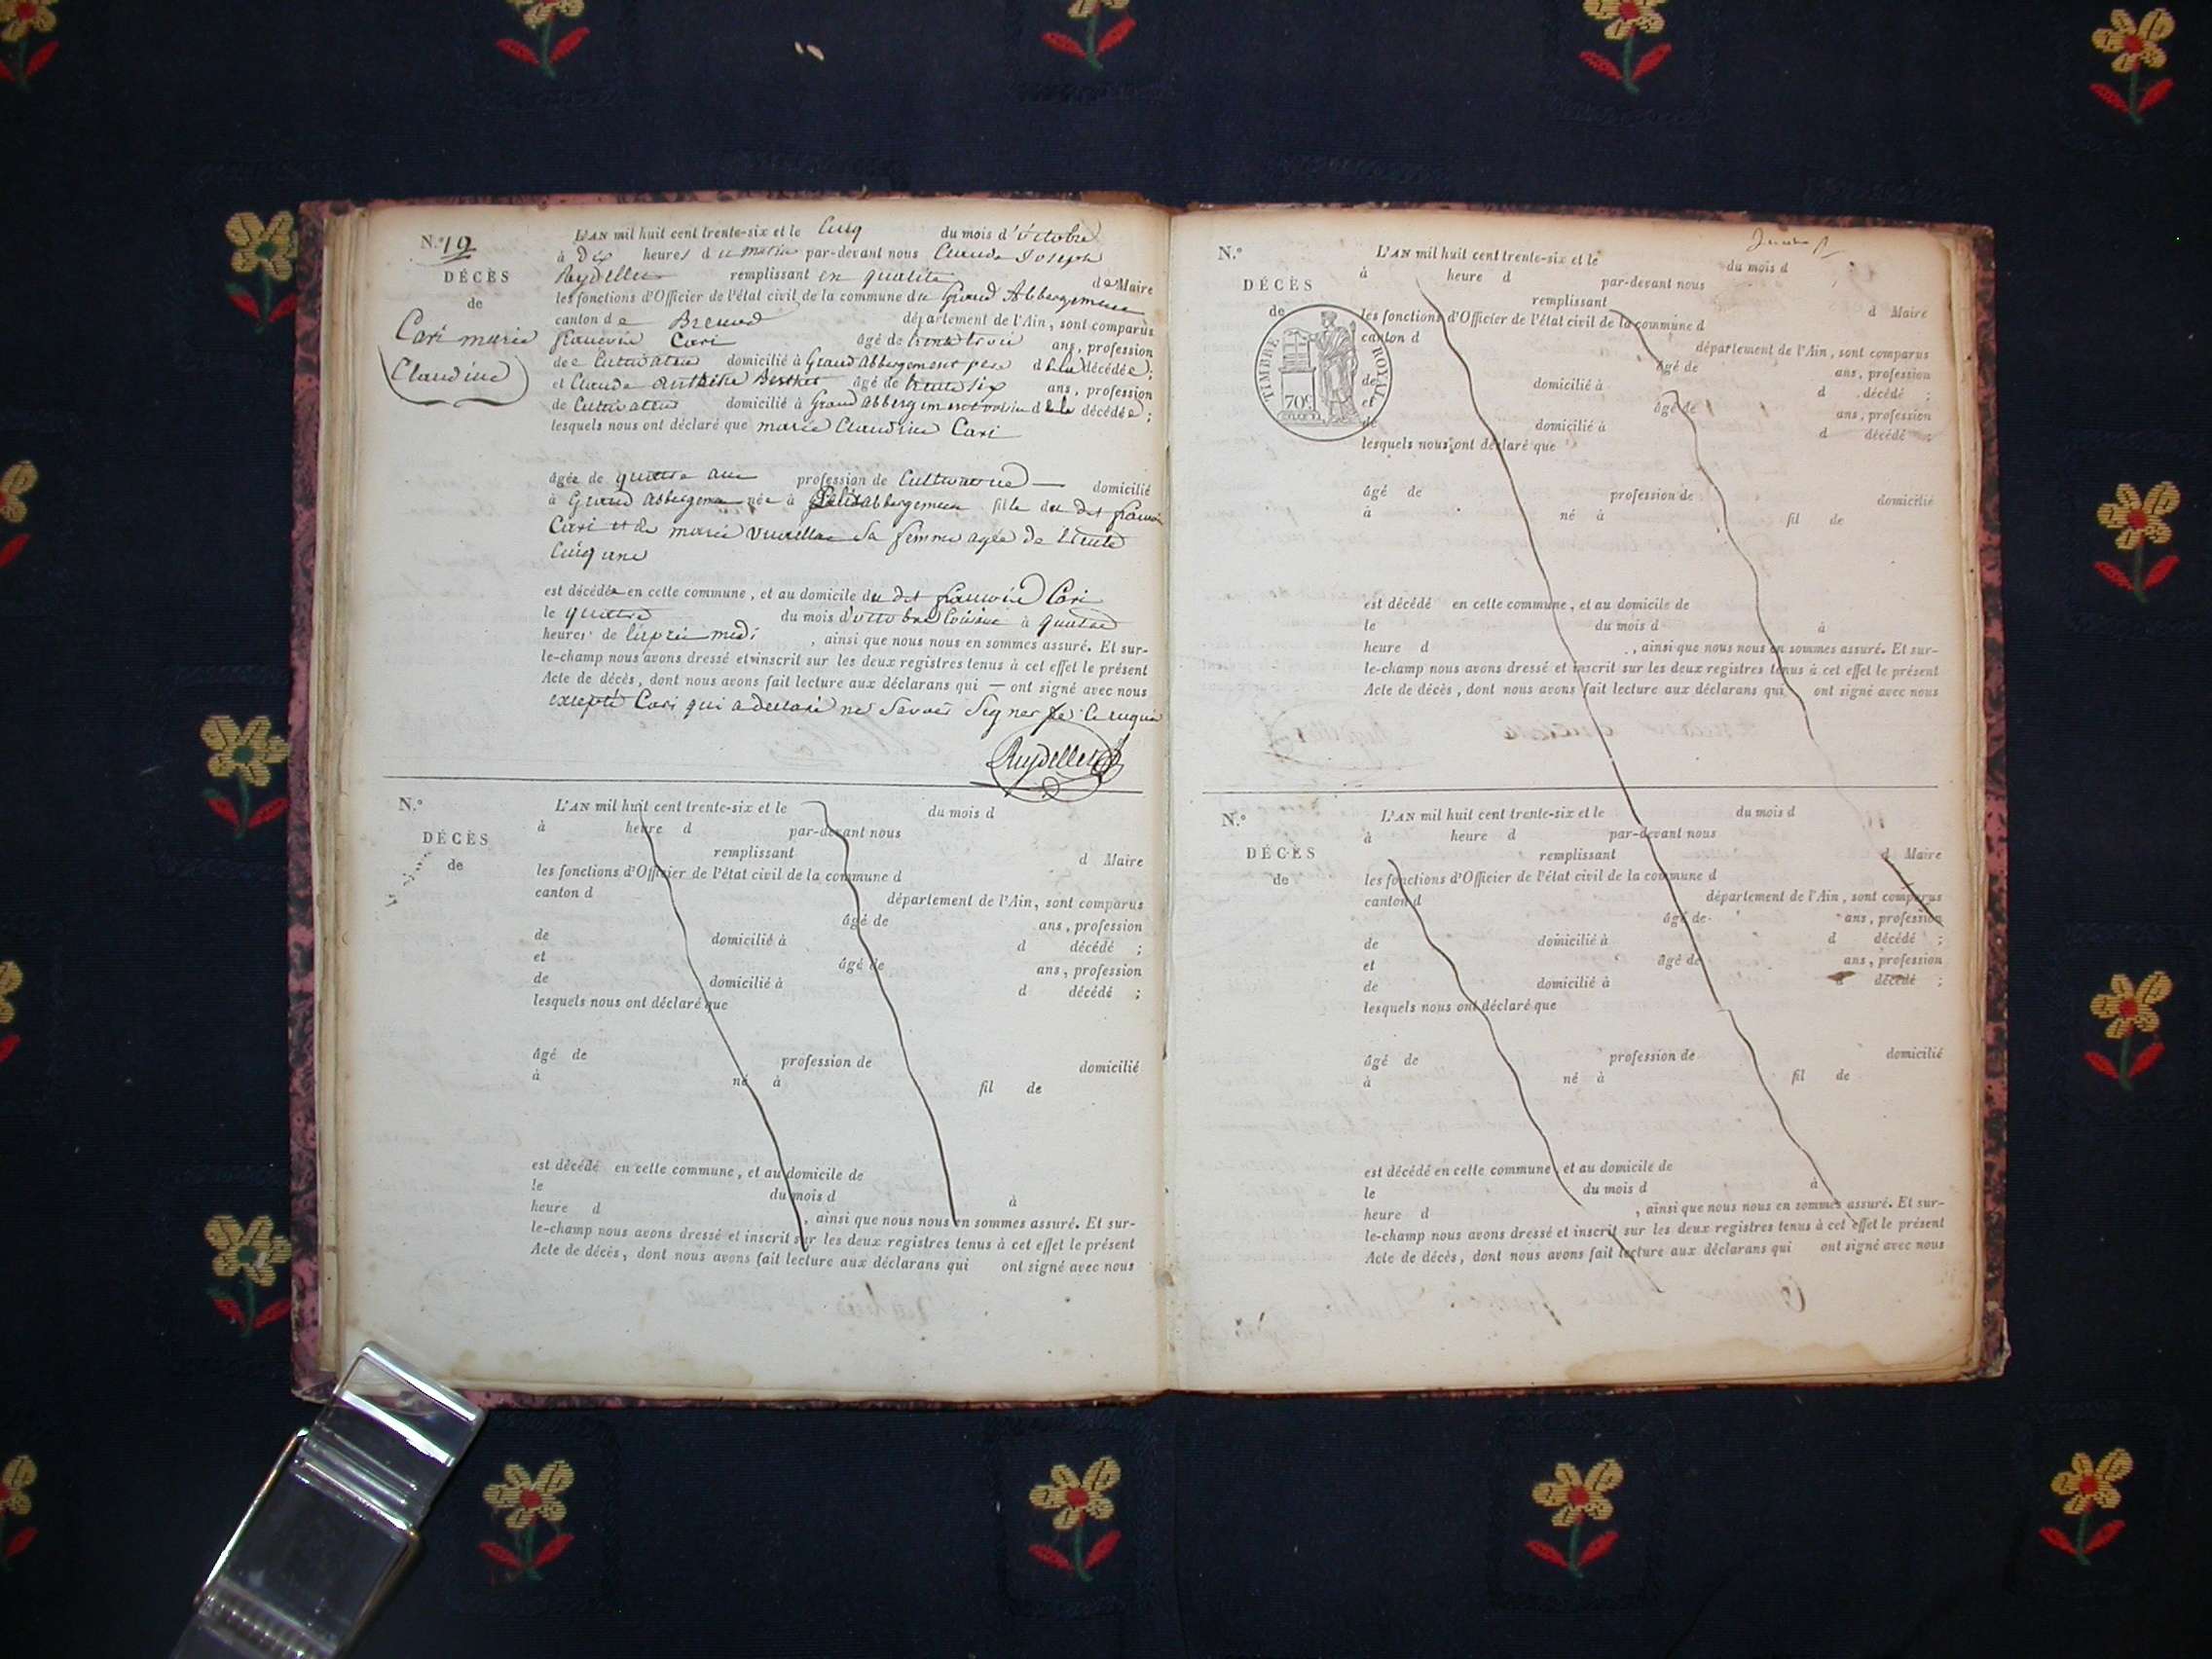 N.° 19
DÉCÈS
de
Cari marie
Claudine
L'AN mil huit cent trente-six et le Cinq du mois d'octobre
à Dix heures du matin par-devant nous Claude Joseph
Ruydellet remplissant en qualité de Maire
les fonctions d'Officier de l'état civil de la commune du Grand Abbergement
canton de Brenod département de l'Ain, sont comparus
françois Cari âgé de trente trois ans, profession
de Cultivateur domicilié à Grand abbergement père de la décédée;
et Claude Berthet âgé de trente six ans, profession
de Cultivateur domicilié à Grand abbergement voisin de la décédée;
lesquels nous ont déclaré que marie Claudine Cari
âgée de quatre ans profession de Cultivatrice — domicilié
à Grand abbergement née à Petit abbergement fille du dit françois
Cari et de marie sa femme agée de trente
Cinq ans
est décédée en cette commune, et au domicile du dit françois Cari
le quatre du mois d'octobre à quatre
heures de l'après midi, ainsi que nous nous en sommes assuré. Et sur-
le-champ nous avons dressé et inscrit sur les deux registres tenus à cet effet le présent
Acte de décès, dont nous avons fait lecture aux déclarans qui — ont signé avec nous
excepté Cari qui a declaré ne Savoir Signer de ce requis
Ruydellet
N.°
DÉCÈS
de
L'AN mil huit cent trente-six et le du mois d
à heure d par-devant nous
remplissant d Maire
les fonctions d'Officier de l'état civil de la commune d
canton d département de l'Ain, sont comparus
âgé de ans, profession
de domicilié à d décédé ;
et âgé de ans, profession
de domicilié à d décédé ;
lesquels nous ont déclaré que
âgé de profession de domicilié
à né à fil de
est décédé en cette commune, et au domicile de
le du mois d à
heure d , ainsi que nous nous en sommes assuré. Et sur-
le-champ nous avons dressé et inscrit sur les deux registres tenus à cet effet le présent
Acte de décès, dont nous avons fait lecture aux déclarans qui ont signé avec nous
N.°
DÉCÈS
de
TIMBRE ROYAL
70c
L'AN mil huit cent trente-six et le du mois d
à heure d par-devant nous
remplissant d Maire
les fonctions d'Officier de l'état civil de la commune d
canton d département de l'Ain, sont comparus
âgé de ans, profession
de domicilié à d décédé ;
et âgé de ans, profession
de domicilié à d décédé ;
lesquels nous ont déclaré que
âgé de profession de domicilié
à né à fil de
est décédé en cette commune, et au domicile de
le du mois d à
heure d , ainsi que nous nous en sommes assuré. Et sur-
le-champ nous avons dressé et inscrit sur les deux registres tenus à cet effet le présent
Acte de décès, dont nous avons fait lecture aux déclarans qui ont signé avec nous
N.°
DÉCÈS
de
L'AN mil huit cent trente-six et le du mois d
à heure d par-devant nous
remplissant d Maire
les fonctions d'Officier de l'état civil de la commune d
canton d département de l'Ain, sont comparus
âgé de ans, profession
de domicilié à d décédé ;
et âgé de ans, profession
de domicilié à d décédé ;
lesquels nous ont déclaré que
âgé de profession de domicilié
à né à fil de
est décédé en cette commune, et au domicile de
le du mois d à
heure d , ainsi que nous nous en sommes assuré. Et sur-
le-champ nous avons dressé et inscrit sur les deux registres tenus à cet effet le présent
Acte de décès, dont nous avons fait lecture aux déclarans qui ont signé avec nous